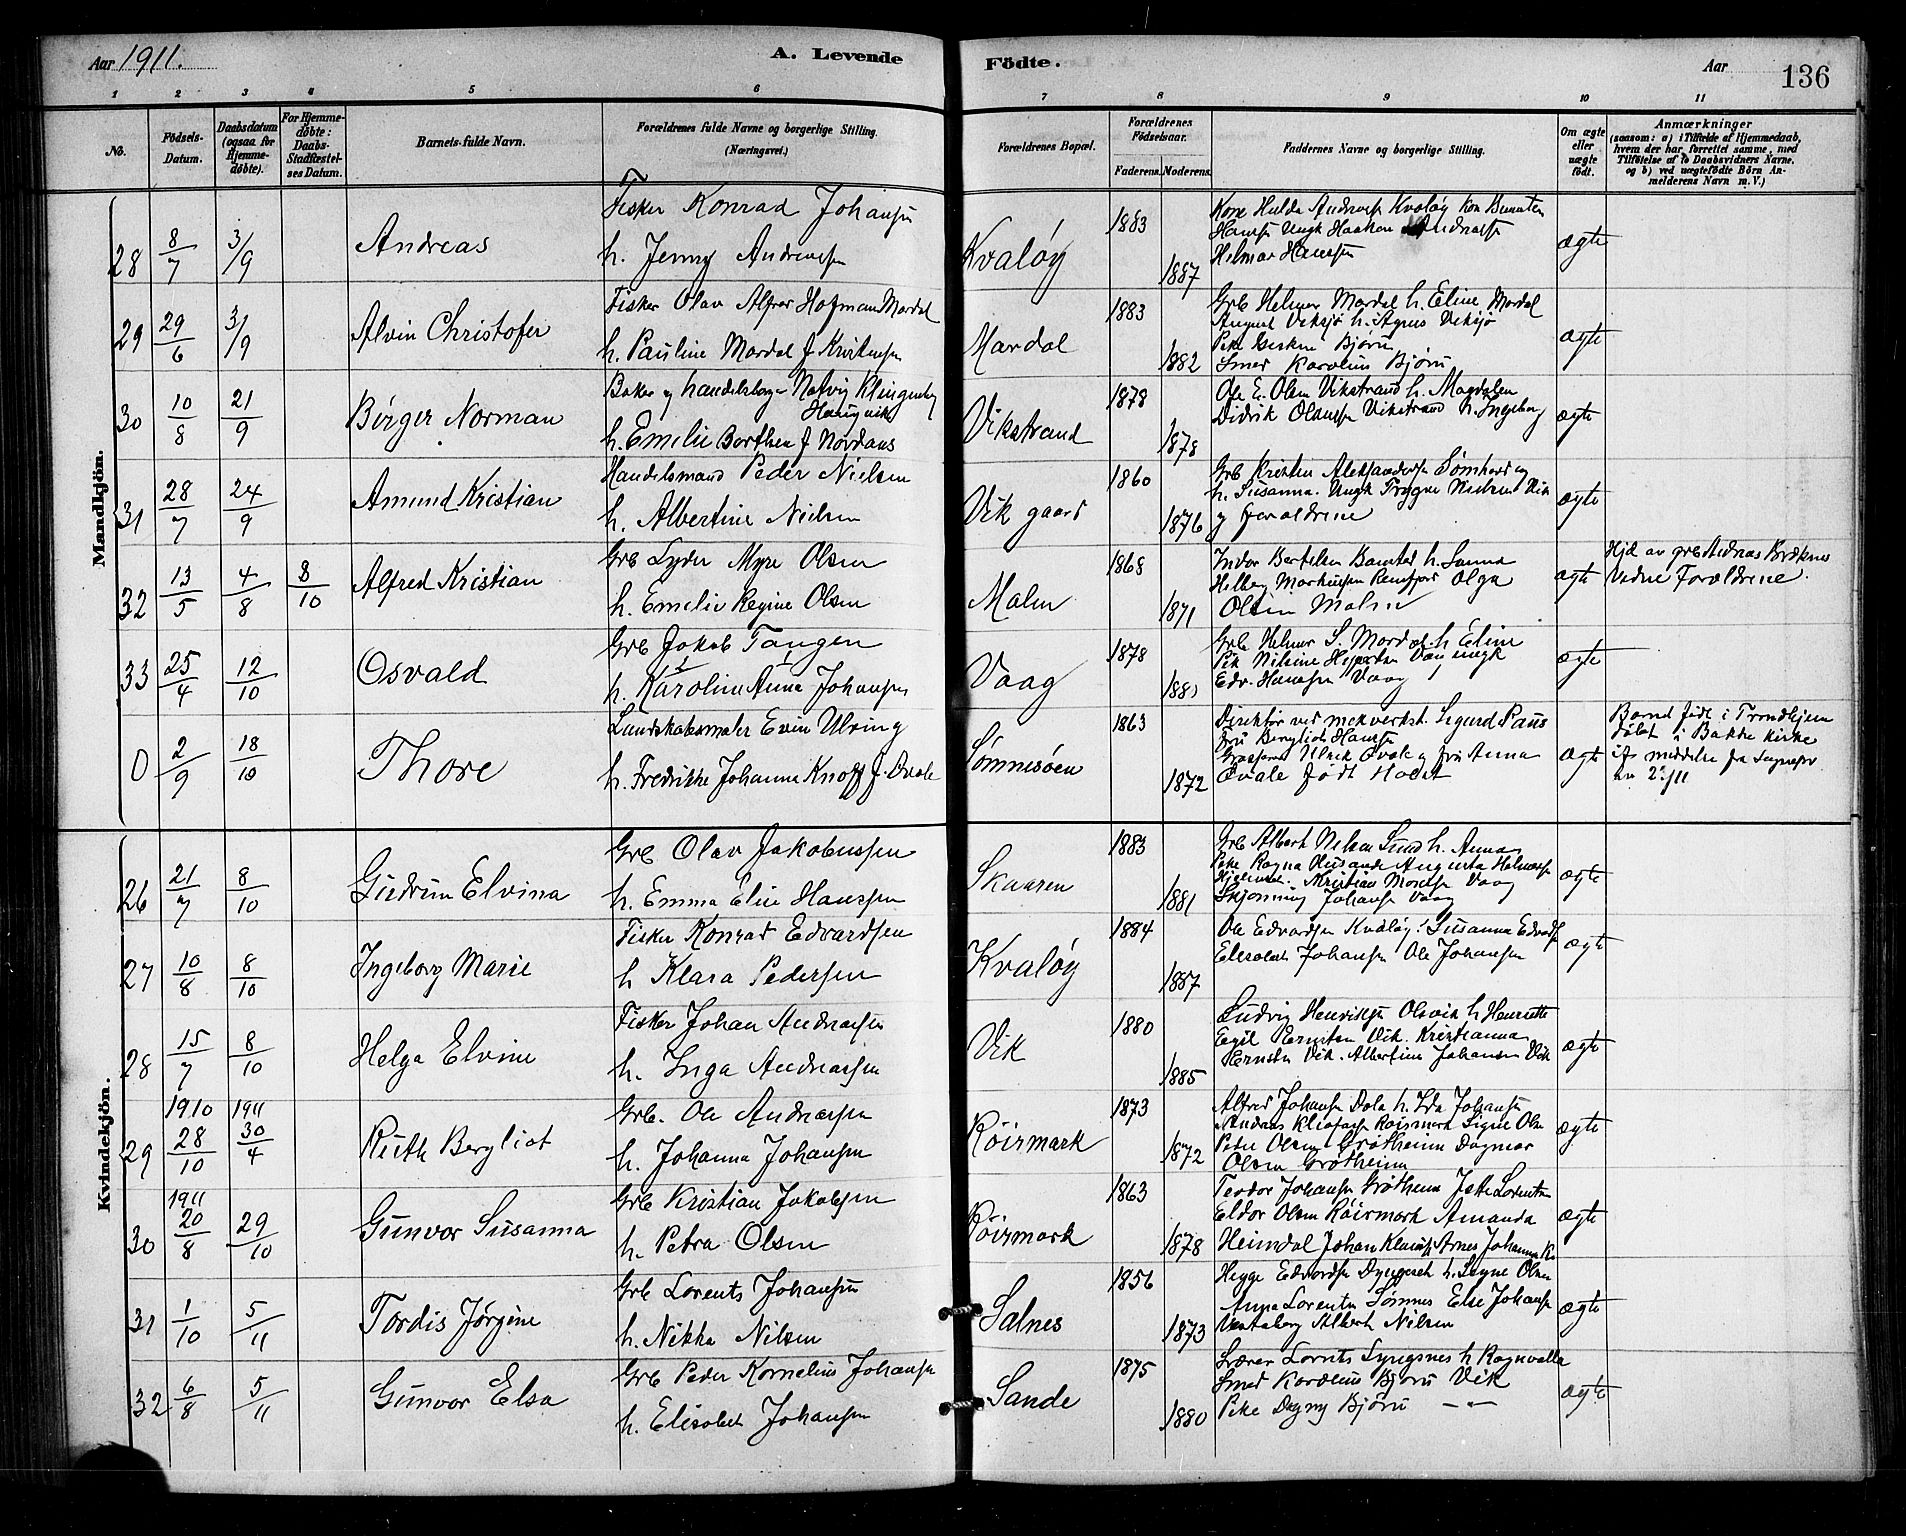 Aar 1911.
A. Levende
Födte.
Aar
136
1 2 3 4 5 6 7 8 9 10 11
No.
Födsels-Datum.
Daabsdatum (ogsaa for Hjemme-döbte).
For Hjemme-döbte: Daabs-Stadfæstel-ses Datum.
Barnets fulde Navn.
Forældrenes fulde Navne og borgerlige Stilling. (Næringsvei.)
Forældrenes Bopæl.
Forældrenes Födselsaar.
Faderens. Moderens.
Faddernes Navne og borgerlige Stilling.
Om ægte eller uægte födt.
Anmærkninger
(saasom: a) i Tilfælde af Hjemmedaab, hvem der har forrettet samme, med Tilföielse af to Daabsvidners Navne, og b) ved uægtefödte Börn An-melderens Navn m. V.)
Mandkjön.
28 8/7 3/9 Andreas
Fisker Konrad Johansen
h. Jenny Andreassen
Kvaløy 1883 1887
Kone Hulda Andreassen Kvaløy
Hansen Ungk Haakon Andreassen
Helmar Hanssen
ægte
29 29/6 3/9 Alvin Christofer
Fisker Olav Alfred Hofman Mardal
h. Pauline Mardal f Kristensen
Mardal 1883 1882
Grb Helmer Mardal h. Eline Mardal
August Viksjø h. Agnes Viksjø
Pike Bjøru
Smed Karolius Bjøru
ægte
30 10/8 21/9 Birger Norman
Baker og handelsborger Natvig Klingenberg
h. Emelie Berthea f Nordaas
Vikstrand 1878 1878
Ole E. Olsen Vikstrand h. Magdalen
Didrik Olaussen Vikstrand h. Ingeborg
ægte
31 28/7 24/9 Amund Kristian
Handelsmand Peder Nielsen
h. Albertine Nielsen
Vik gaard 1860 1876
Grb Kristen Aleksandersen Sømhovd og
h. Susanna. Ungk Trygve Nielsen Vik
og foreldrene
ægte
32 13/5 4/8 8/10 Alfred Kristian
Grb Lyder Myre Olsen
h. Emelie Regine Olsen
Malm 1868 1871
Indor Bertelsen h.
Helberg Markussen Olga
Olsen Malm
ægte
Hjd av grb Andreas
Vidne Foreldrene.
33 25/4 12/10 Osvald
Grb Jakob Tangen
h. Karoline Anna Johansen
Vaag 1878
Grb Helmer S. Mardal h Eline
Pik Nilsine Vaag ungk
Edv. Hanssen Vaag
ægte
0 2/9 18/10 Thore
Landskabsmaler Even Ulving
h. Fredrikke Johanne Knoff f. Qvale
Sømnesøen 1863 1872
Direktør ved mekverkst. Sigurd Paus
fru Bergliot Hansen
Ulrik Qvale og fru Anna
Qvale født Holst
ægte
Barnet født i Trondhjem
døbt i Bakke kirke
Kvindekjön.
26 21/7 8/10 Gudrun Elvina
Grb Olav Jakobussen
h. Emma Eline Hanssen
Skaaren 1883 1881
Grb Albert Nilsen Sund h. Anna
Pike Ragna Husande Augusta
Kristian Vaag
Skjonning Johansen Vaag
ægte
27 10/8 8/10 Ingeborg Marie
Fisker Konrad Edvardsen
h Klara Pedersen
Kvaløy 1884 1887
Ole Edvardsen Kvaløy Susanna Edvards
Elisabet Johansen Ole Johansen
ægte
28 15/7 8/10 Helga Elvine
Fisker Johan Andreassen
h. Inga Andreassen
Vik 1880 1885
Ludvig Henriksen h Henriette
Egil Ernsten Vik. Kristianna
Ernsten Vik. Albertine Johansen Vik
ægte
29 1910 28/10 1911 30/4 Ruth Bergliot
Grb. Ole Andreassen
h. Johanna Johansen
Røirmark 1873 1872
Alfred Johansen Dala h. Ida Johansen
Andreas Røirmark Signe Olsen
Peder Olsen Grøtheim Dagmar
Olsen Grøtheim
ægte
30 1911 20/8 29/10 Gunvor Susanna
Grb Kristian Jakobsen
h. Petra Olsen
Røirmark 1863 1878
Teodor Johansen Grøtheim Jette Lorentsen
Eldor Olsen Røirmark Amanda
Heimdal Johan Arnes Johanna
ægte
31 1/10 5/11 Tordis Jørgine
Grb Lorents Johansen
h. Nikka Nilsen
Salnes 1856 1873
Hegge Edvardsen h. Signe Olsen
Anna Lorentsen Sømnes Else Johansen
Albert Nilsen
ægte
32 6/8 5/11 Gunvor Elsa
Grb Peder Kornelius Johansen
h. Elisabet Johansen
Sande 1875 1880
Lærer Lornts h Ragnvalla
Smed Karolius Bjøru Vik
Pike Dagny Bjøru — " —
ægte